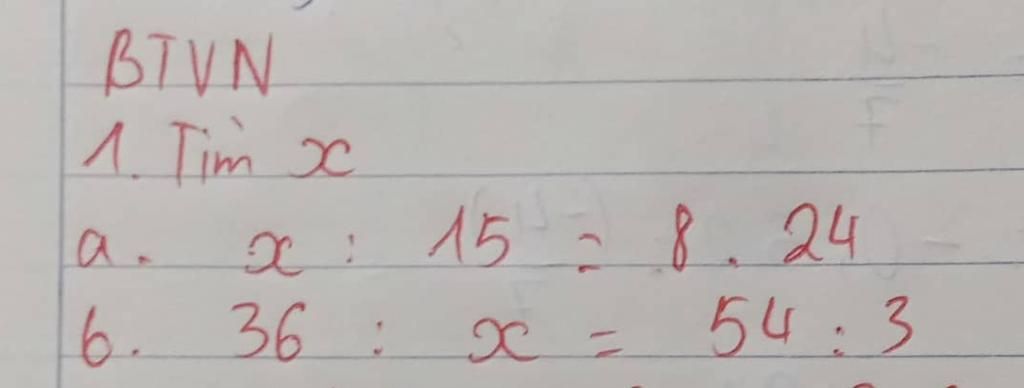 BTVN
1. Tìm x
a. x : 15 = 8 . 24
b. 36 : x = 54 : 3